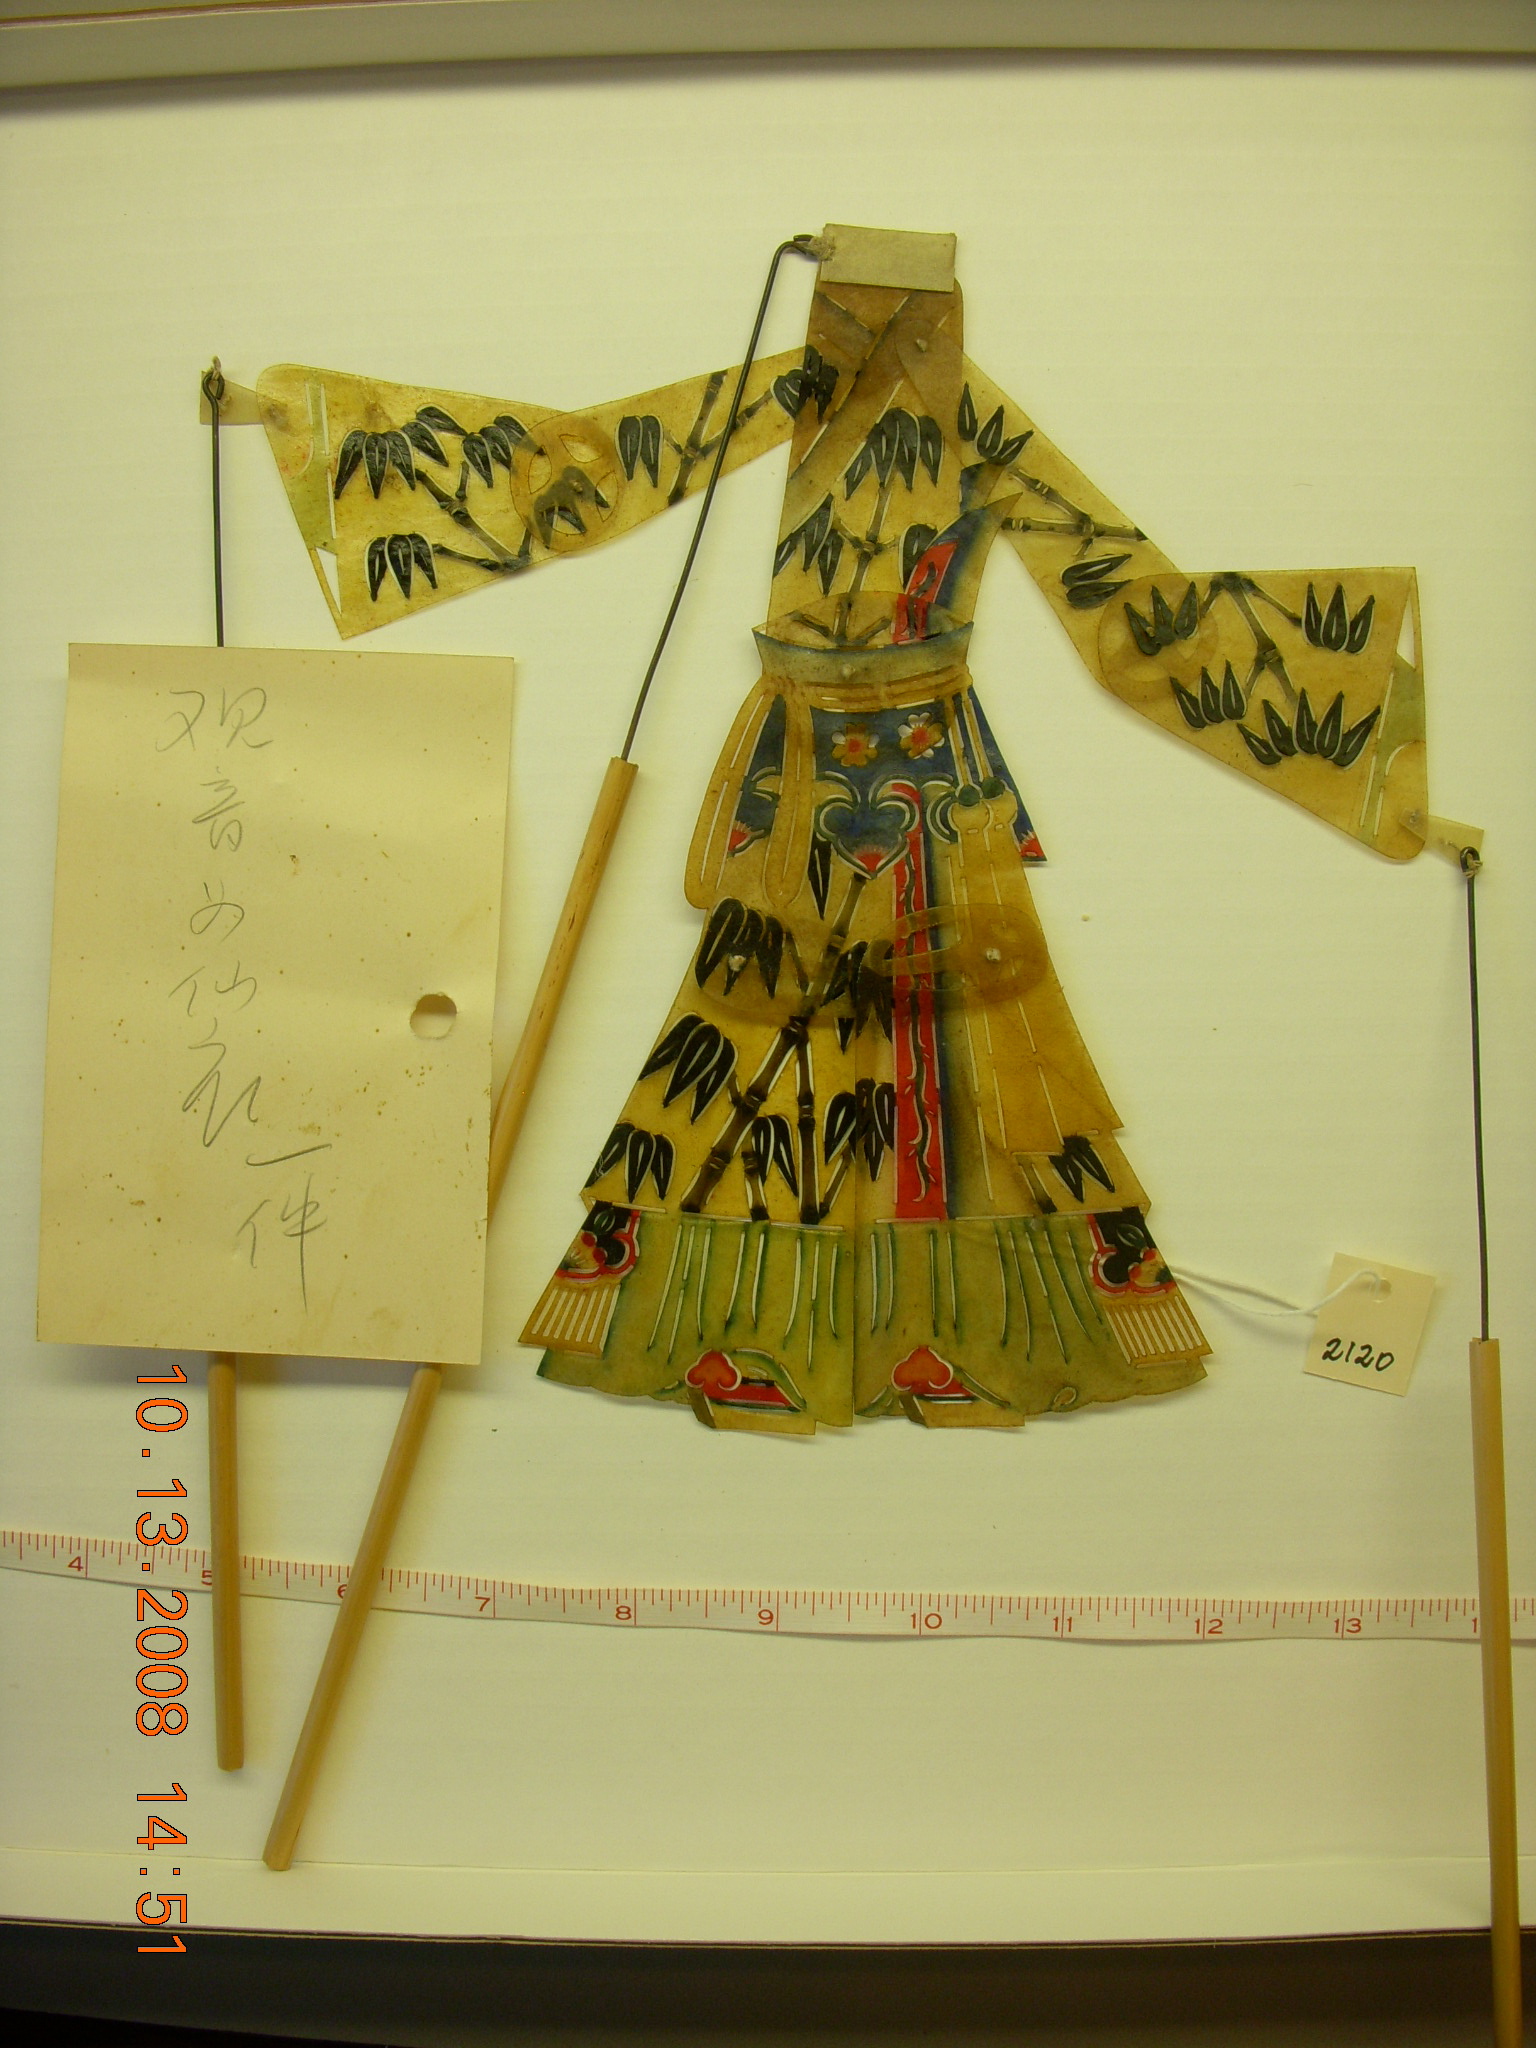 观音女仙衣一件
2120
4 5 6 7 8 9 10 11 12 13 1
10.13.2008 14:51